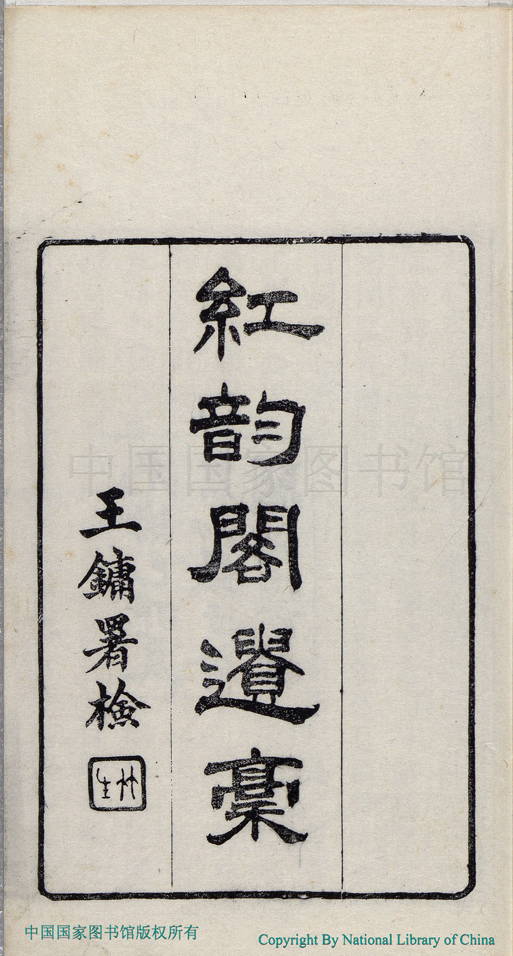 紅韵閣遺稾
王鏞署檢
竹生
中国国家图书馆
中国国家图书馆版权所有
Copyright By National Library of China